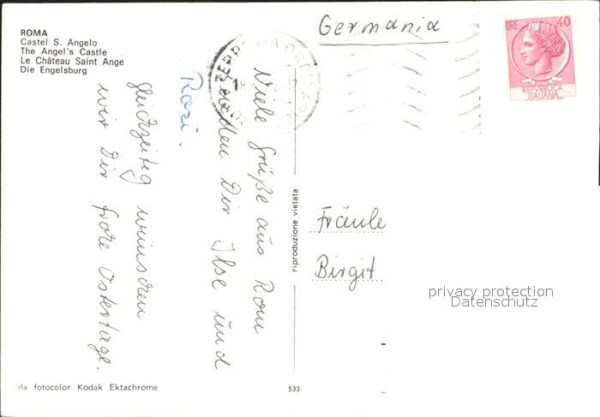 ROMA
Castel S. Angelo
The Angel's Castle
Le Château Saint Ange
Die Engelsburg
Germania
LIRE 40
REPUBBLICA
ITALIANA
Viele Grüße aus Rom
senden Dir Ilse und
Rosi.
gleichzeitig wünschen
wir Dir frohe Ostertage.
riproduzione vietata
Fräule
Birgit
privacy protection
Datenschutz
da fotocolor Kodak Ektachrome
533